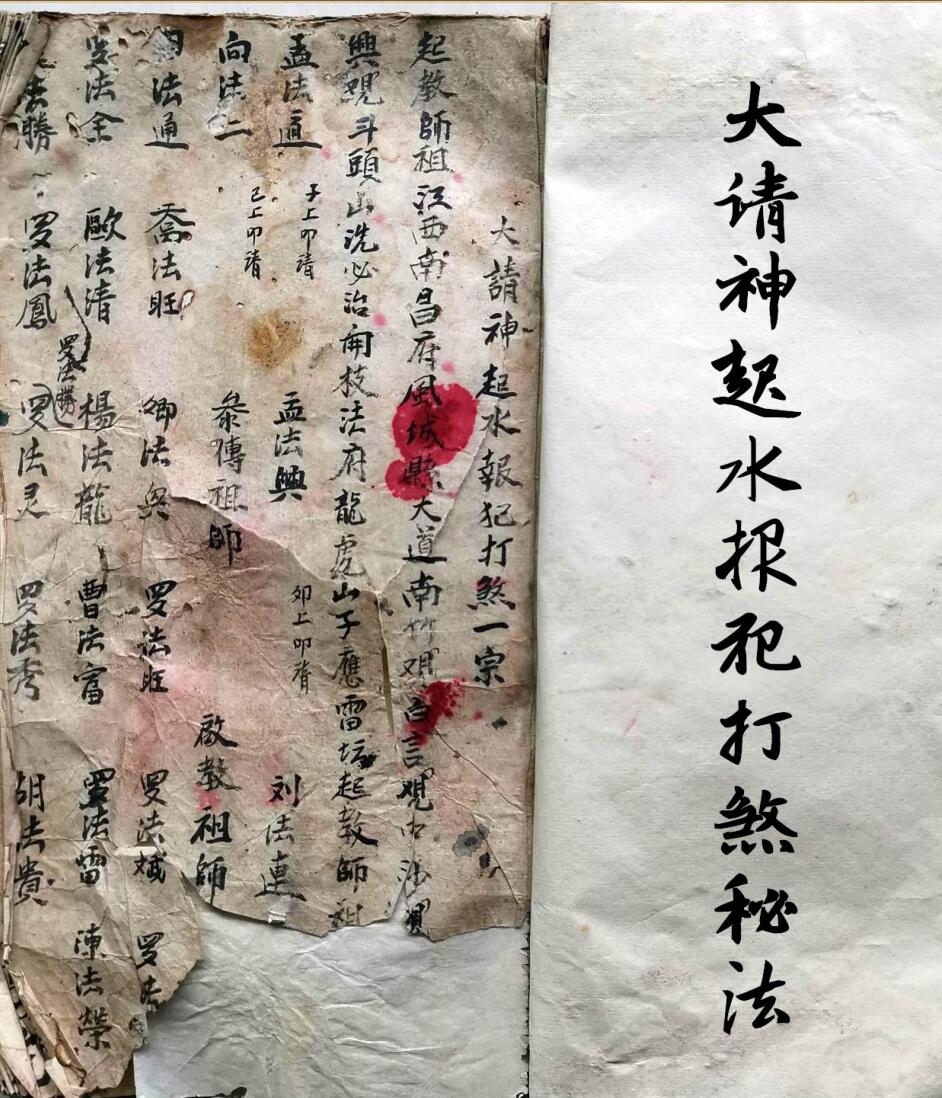 大请神起水报犯打煞秘法
大請神起水報犯打煞一宗
起教師祖江西南昌府風城縣大道南竹觀白言觀中法
興觀斗頭山洗必治開枝法府龍虎山子應雷坛起教師祖
孟法道 子上叩請 孟法興 卯上叩請 刘法連
向法二 己上叩請 叅傳祖師 啟教祖師
法通 喬法旺 卿法興 罗法旺 罗法斌 罗法
罗法全 歐法清 楊法龍 曹法富 罗法雷 陳法榮
法勝 罗法鳳 罗法勝 罗法灵 罗法秀 胡法貴